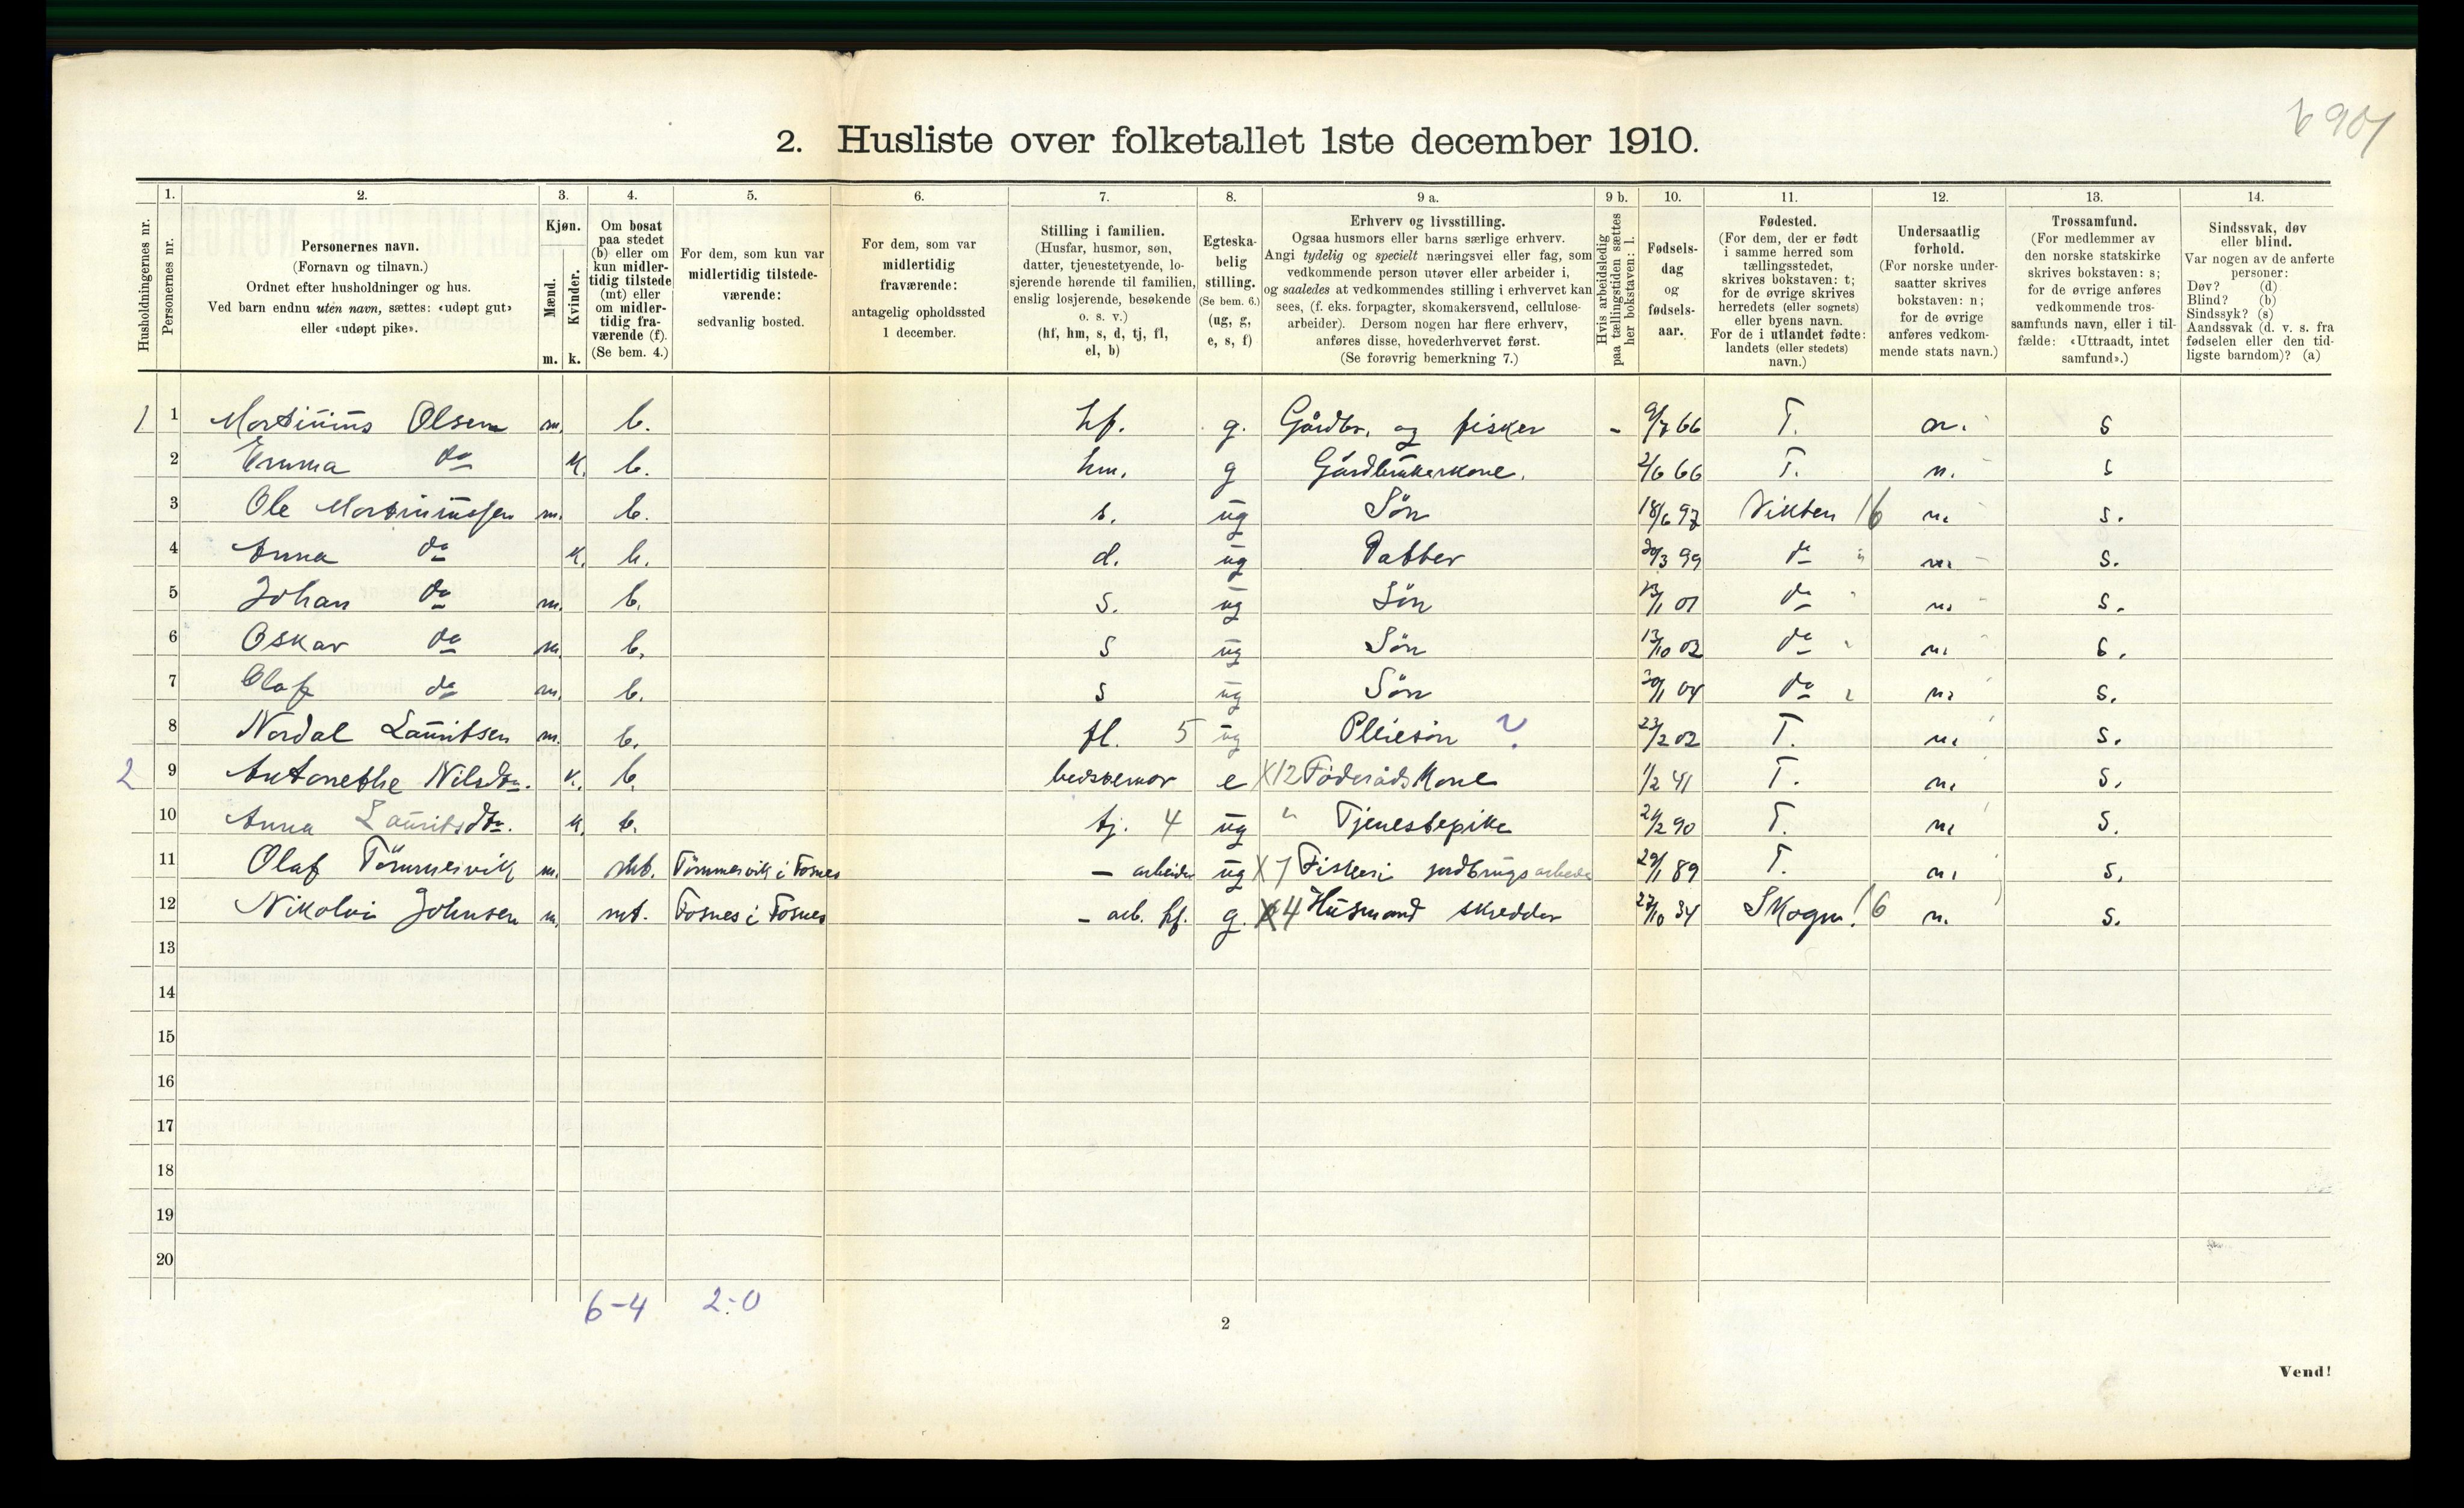 6901
2. Husliste over folketallet 1ste december 1910.
Husholdningernes nr.
1.
Personernes nr.
2.
Personernes navn.
(Fornavn og tilnavn.)
Ordnet efter husholdninger og hus.
Ved barn endnu uten navn, sættes: «udøpt gut»
eller «udøpt pike».
3.
Kjøn.
Mænd.
Kvinder.
m. k.
4.
Om bosat
paa stedet
(b) eller om
kun midler-
tidig tilstede
(mt) eller
om midler-
tidig fra-
værende (f).
(Se bem. 4.)
5.
For dem, som kun var
midlertidig tilstede-
værende:
sedvanlig bosted.
6.
For dem, som var
midlertidig
fraværende:
antagelig opholdssted
1 december.
7.
Stilling i familien.
(Husfar, husmor, søn,
datter, tjenestetyende, lo-
sjerende hørende til familien,
enslig losjerende, besøkende
o. s. v.)
(hf, hm, s, d, tj, fl,
el, b)
8.
Egteska-
belig
stilling.
(Se bem. 6.)
(ug, g,
e, s, f)
9 a.
Erhverv og livsstilling.
Ogsaa husmors eller barns særlige erhverv.
Angi tydelig og specielt næringsvei eller fag, som
vedkommende person utøver eller arbeider i,
og saaledes at vedkommendes stilling i erhvervet kan
sees, (f. eks. forpagter, skomakersvend, cellulose-
arbeider). Dersom nogen har flere erhverv,
anføres disse, hovederhvervet først.
(Se forøvrig bemerkning 7.)
9 b.
Hvis arbeidsledig
paa tællingstiden sættes
her bokstaven: l.
10.
Fødsels-
dag
og
fødsels-
aar.
11.
Fødested.
(For dem, der er født
i samme herred som
tællingsstedet,
skrives bokstaven: t;
for de øvrige skrives
herredets (eller sognets)
eller byens navn.
For de i utlandet fødte:
landets (eller stedets)
navn.)
12.
Undersaatlig
forhold.
(For norske under-
saatter skrives
bokstaven: n;
for de øvrige
anføres vedkom-
mende stats navn.)
13.
Trossamfund.
(For medlemmer av
den norske statskirke
skrives bokstaven: s;
for de øvrige anføres
vedkommende tros-
samfunds navn, eller i til-
fælde: «Uttraadt, intet
samfund».)
14.
Sindssvak, døv
eller blind.
Var nogen av de anførte
personer:
Døv? (d)
Blind? (b)
Sindssyk? (s)
Aandssvak (d. v. s. fra
fødselen eller den tid-
ligste barndom)? (a)
1 1 Martinius Olsen m. b. hf. g. Gårdbr. og fisker - 9/7 66 T. n. s
2 Emma do k. b. hm. g Gårdbrukerkone. 2/6 66 T. n. s
3 Ole Martiniussen m. b. s. ug Søn 18/6 97 Vikten 16 n. s.
4 Anna do k. b. d. ug Datter 30/3 99 do " n. s.
5 Johan do m. b. s. ug Søn 01 do " n. s.
6 Oskar do m. b. s ug Søn 13/10 02 do " n. s.
7 Olaf do m. b. s ug Søn 04 do " n. s.
8 Nordal Lauritsen m. b. fl. 5 ug Pleiesøn 23/2 02 T. n. s.
2 9 Antonethe Nilsdtr. k. b. bedstemor e X12 Föderådskone 1/2 41 T. n. s.
10 Anna Lauritsdtr. k. b. tj. 4 ug " Tjenestepike 2 90 T. n. s.
11 Olaf Tömmervik m. mt. Tömmervik i Fosnes - arbeider ug X 7 Fiskeri jordbrugsarbeide 29/1 89 T. n. s.
12 Nikolai Johnsen m. mt. Fosnes i Fosnes - arb. hf. g. X4 Husmand skredder 27/10 34 Skogn! 6 n. s.
13
14
15
16
17
18
19
20
6-4 2-0
2
Vend!